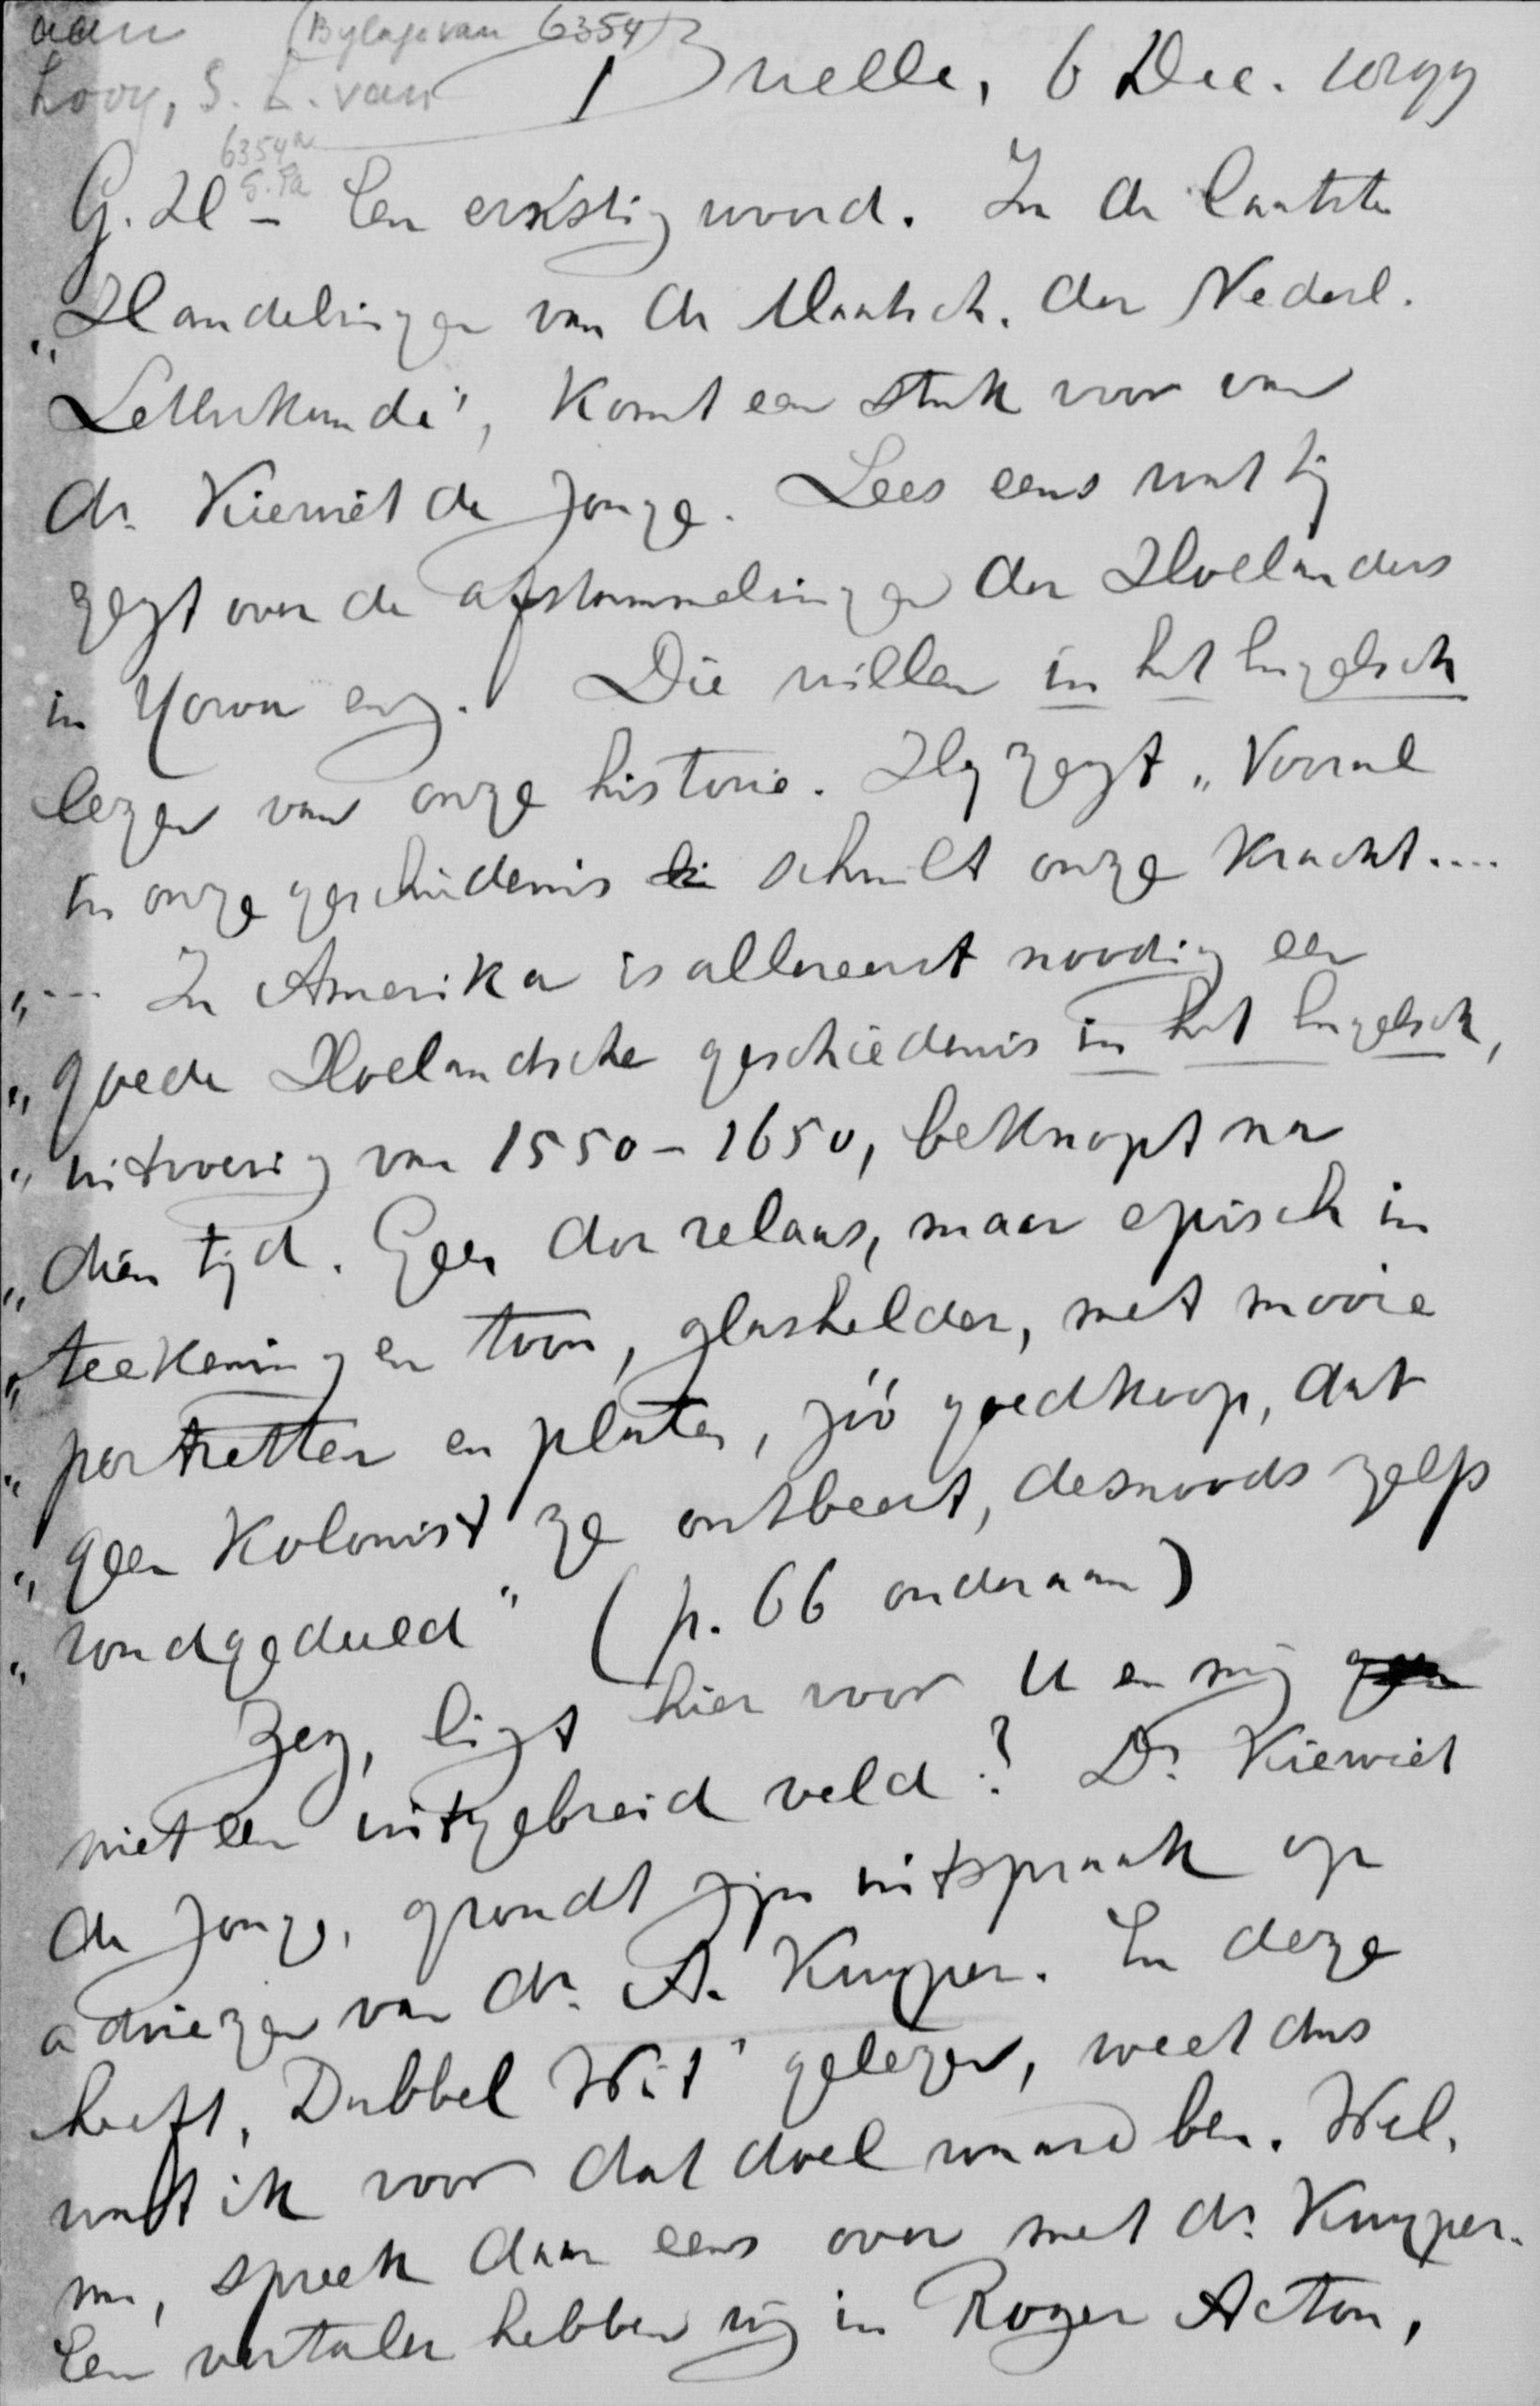 aan (Bylage van 6354)
Looy, S. L. van
Nuelle, 6 Dec. 1899
6354a
G. H - Een ernstig woord. In de laatste
„Handelingen van de Maatsch. der Nederl.
Letterkunde", komt een stuk voor van
dr. Kiewiet de Jonge. Lees eens wat hij
zegt over de afstammelingen der Hollanders
in Yowa enz. Die willen in het Engelsch
lezen van onze historie. Hy zegt „Vooral
in onze geschiedenis schuilt onze kracht....
„... In Amerika is allereerst noodig een
„goede Hollandsche geschiedenis in het Engelsch,
„uitvoerig van 1550-1650, beknopt na
„dien tyd. Geen dor relaas, maar episch in
„teekening en toon, glashelder, met mooie
„portretten en platen, zóó goedkoop, dat
„geen kolonist ze ontbeert, desnoods zelfs
„rondgedeeld" (p. 66 onderaan)
Zeg, ligt hier voor U en mij
niet een uitgebreid veld? Dr. Kiewiet
de Jonge, grondt zijn uitspraak op
adviezen van dr. A. Kuyper. En deze
heeft „Dubbel Wit" gelezen, weet dus
wat ik voor dat doel waard ben. Wel,
nu, spreek daar eens over met dr. Kuyper.
Een vertaler hebben wij in Roger Acton,